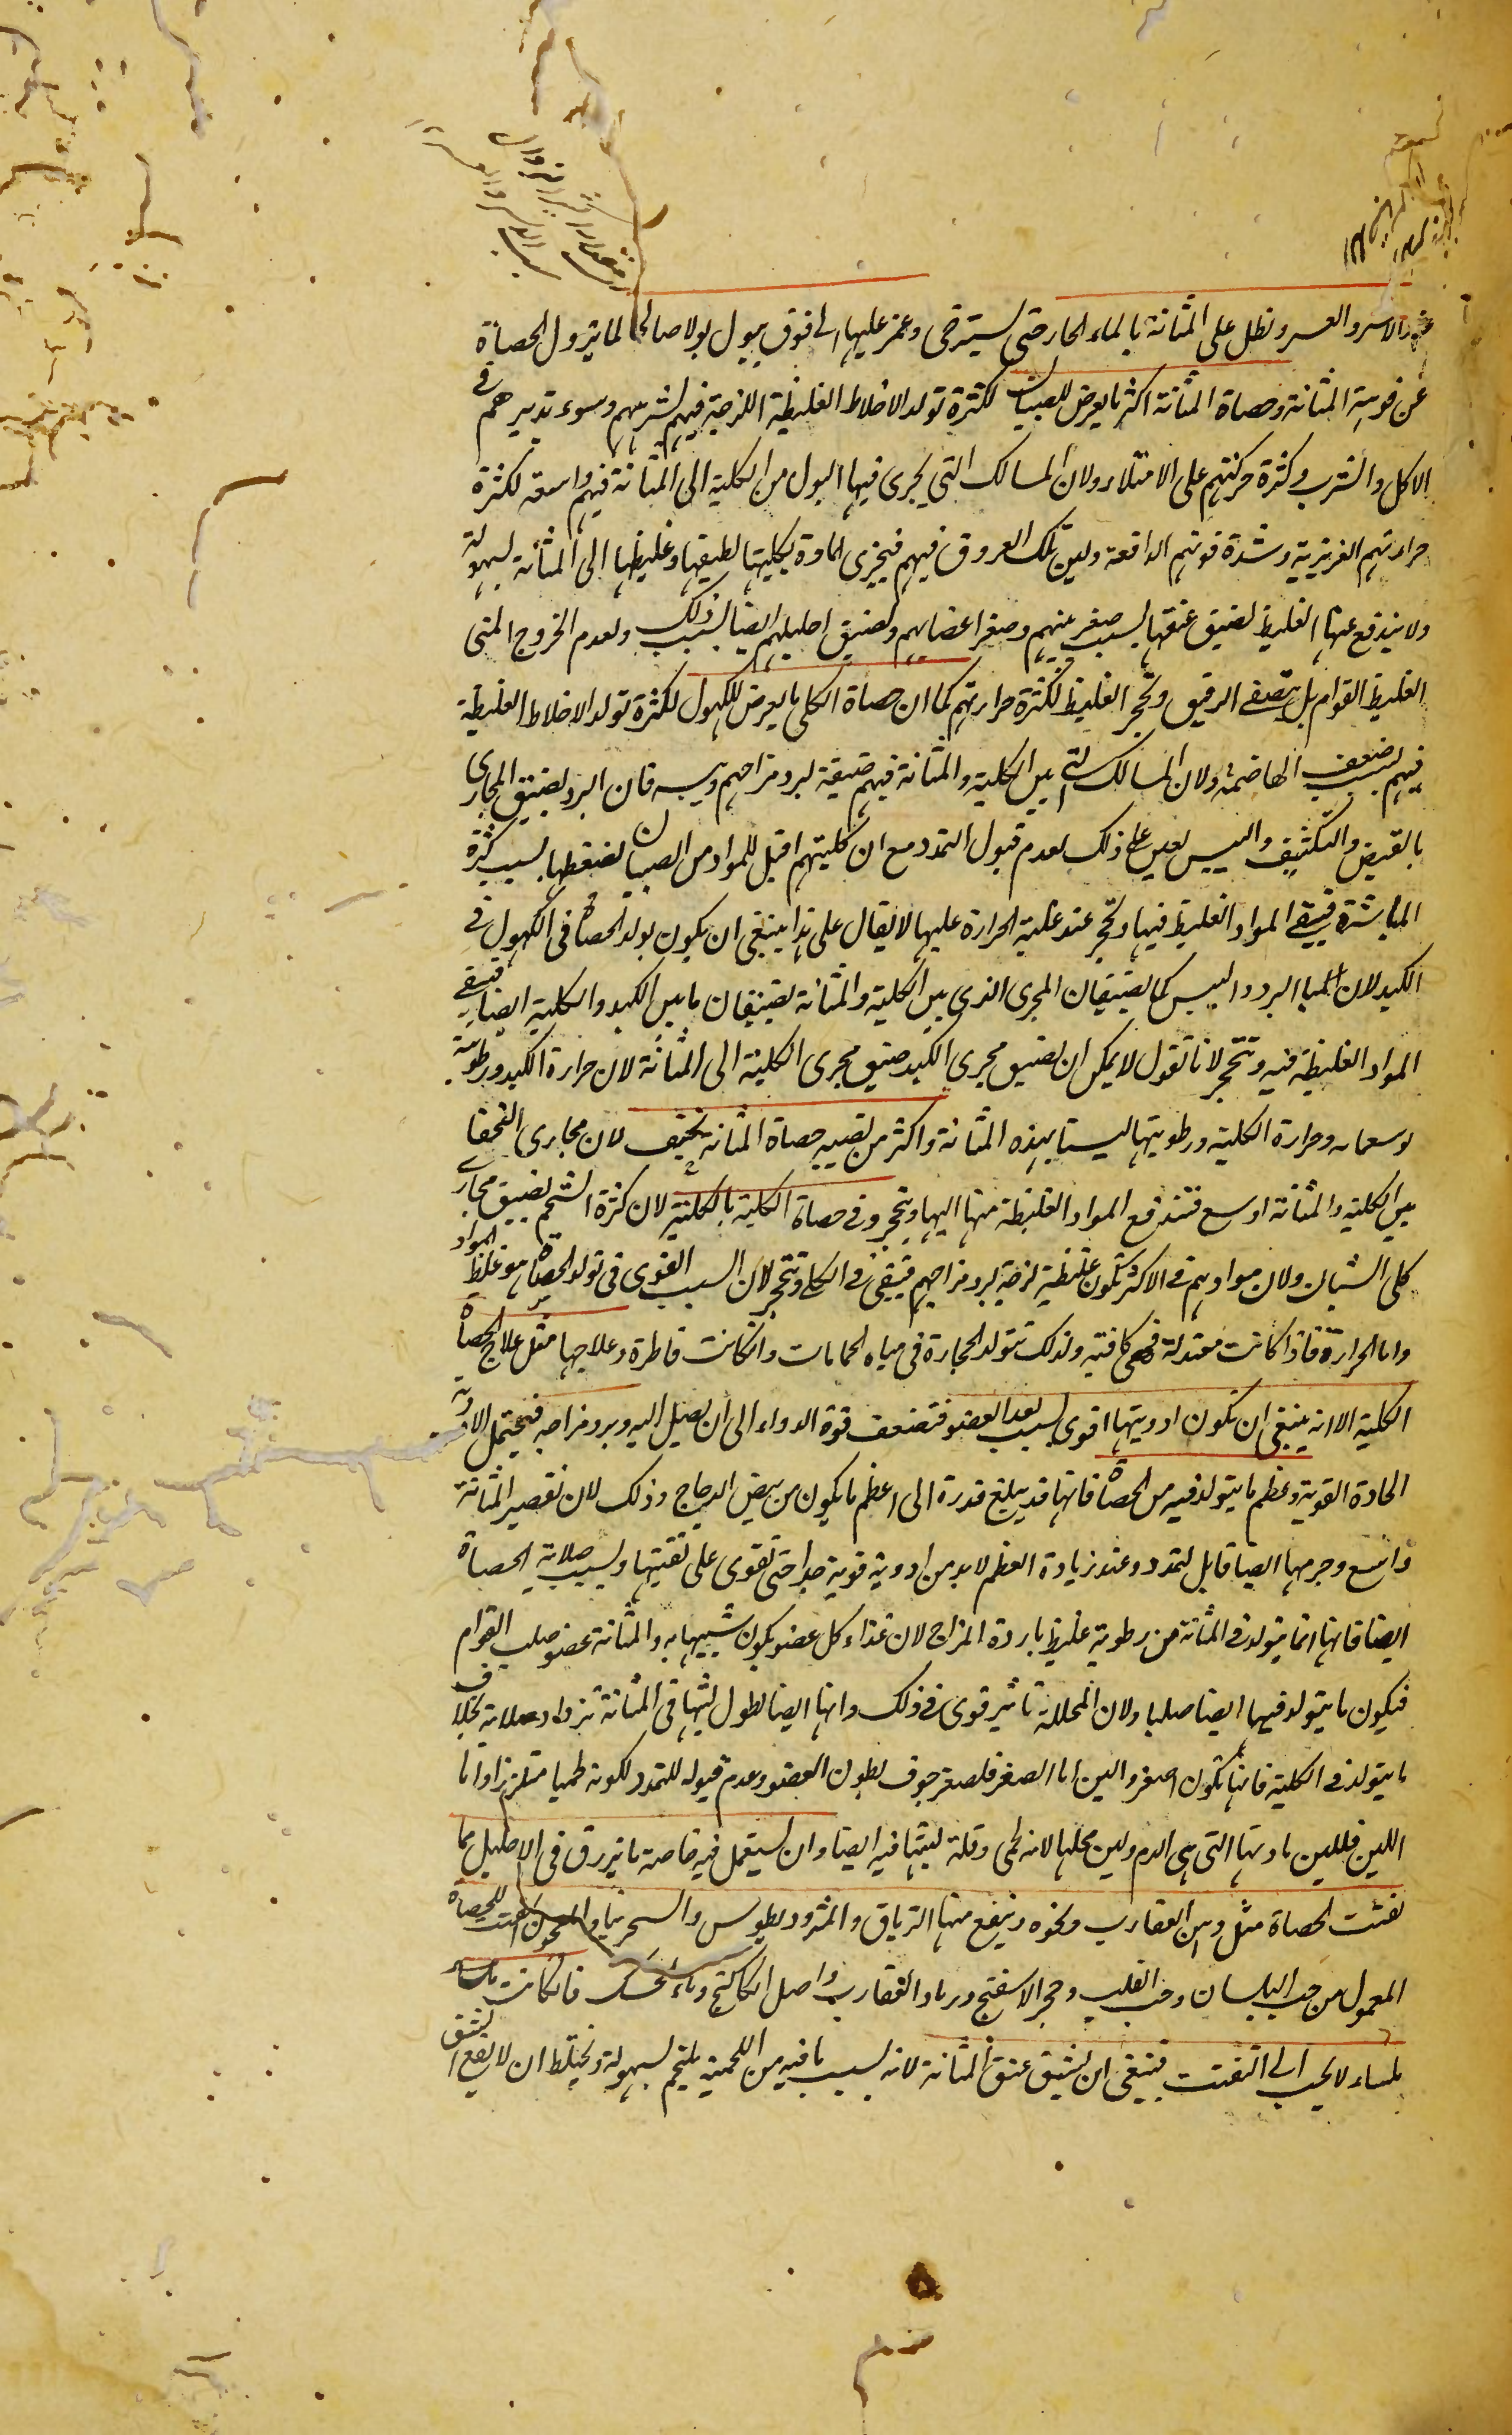 الاسر والعسر ونطل على المثانة بالماء الحار حتى يسترخى وغمز عليها الى فوق يبول بولا صالحا لما يزول الحصاة
عن فوهة المثانة وحصاة المثانة اكثر ما يعرض للصبيان لكثرة تولد الاخلاط الغليظة اللزجة فيهم لشرههم وسوء تدبيرهم فى
الاكل والشرب وكثرة حركتهم على الامتلاء ولان المسالك التى يجرى فيها البول من الكلية الى المثانة فيهم واسعة لكثرة
حرارتهم الغريزية وشدة قوتهم الدافعة ولين تلك العروق فيهم فيجرى المادة بكليتها لطيفها وغليظها الى المثانة بسهولة
ولا يندفع عنها الغليظ لضيق عنقها بسبب صغر سنهم وصغر اعضايهم ولضيق احليلهم ايضا بسبب ذلك ولعدم الخروج المنى
الغليظ القوام بل يتصفى الرقيق وتحجر الغليظ لكثرة حرارتهم كما ان حصاة الكلى ما يعرض للكهول لكثرة تولد الاخلاط الغليظة
فيهم بسبب ضعف الهاضمة ولان المسالك التى بين الكلية والمثانة فيهم ضيقة لبرد مزاجهم ويبسه فان البرد يضيق المجارى
بالقبض والتكثيف واليبس يعين على ذلك لعدم قبول التمدد مع ان كليتهم اقبل للمواد من الصبيان لضغطها بسبب كثرة
المباشرة فيبقى المواد الغليظ فيها وتحجر عند غلبة الحرارة عليها لا يقال على هذا ينبغى ان يكون تولد الحصاة فى الكهول فى
الكبد لان البرد واليبس كما يضيقان المجرى الذى بين الكلية والمثانة يضيقان ما بين الكبد والكلية ايضا فيبقى
المواد الغليظة فيه وتتحجر لانا نقول لا يمكن ان يضيق مجرى الكبد ضيق مجرى الكلية الى المثانة لان حرارة الكبد ورطوبته
يوسعانه وحرارة الكلية ورطوبتها ليستا بهذه المثانة واكثر من يصيبه حصاة المثانة نحيف لان مجارى النحفا
بين الكلية والمثانة اوسع فتندفع المواد الغليظة منها اليها ويتحجر وفى حصاة الكلية بالكلية لان كثرة الشحم يضيق مجارى
كلى الشبان ولان موادهم فى الاكثر تكون غليظة لزجة لبرد مزاجهم فيبقى فى الكلى وتتحجر لان السبب القوى فى تولد الحصاة هو غلظ المواد
واما الحرارة فاذا كانت معتدلة فهى كافية ولذلك تتولد الحجارة فى مياه الحمامات وان كانت قاطرة وعلاجها مثل علاج حصاة
الكلية الا انه ينبغى ان تكون ادويتها اقوى بسبب بعد العضو فتضعف قوة الدواء الى ان يصل اليه وبرد مزاجه فيحتمل الادوية
الحادة القوية وعظم ما يتولد فيه من الحصاة فانها قد يبلغ قدره الى اعظم ما يكون من بيض الدجاج وذلك لان تقعير المثانة
واسع وجرمها ايضا قابل لتمدد وعند زيادة العظم لا بد من ادوية قوية جدا حتى تقوى على تفتيتها وبسبب صلابة الحصاة
ايضا فانها انما يتولد فى المثانة من رطوبة غليظ باردة المزاج لان غذاء كل عضو يكون شبيها به والمثانة عضو صلب القوام
فيكون ما يتولد فيها ايضا صلبا ولان المحللة تاثير قوى فى ذلك وانها ايضا لطول لبثها فى المثانة تزداد صلابة بخلاف
ما يتولد فى الكلية فانها تكون اصغر والين اما الصغر فلصغر جوف بطون العضو وعدم قبوله للتمدد لكونه لحميا متلززا واما
اللين فللين مادتها التى هى الدم ولين محلها لانه لحمى وقلة لبثها فيه ايضا وان يستعمل فيه خاصة ما يزرق فى الاحليل مما
تفتت الحصاة مثل دهن العقارب ونحوه وينفع منها الترياق والمثروديطوس والسجرينيا والمعجون المفتت للحصاة
المعمول من حب البلسان وحب القلب وحجر الاسفنج ورماد العقارب واصل الكاكنج وماء حسك فان كانت
ملساء لا يجيب الى التفتت فينبغى ان يشق عنق المثانة لانه بسبب ما فيه من اللحمية يلتحم بسهولة ويحتاط ان لا يقع الشق